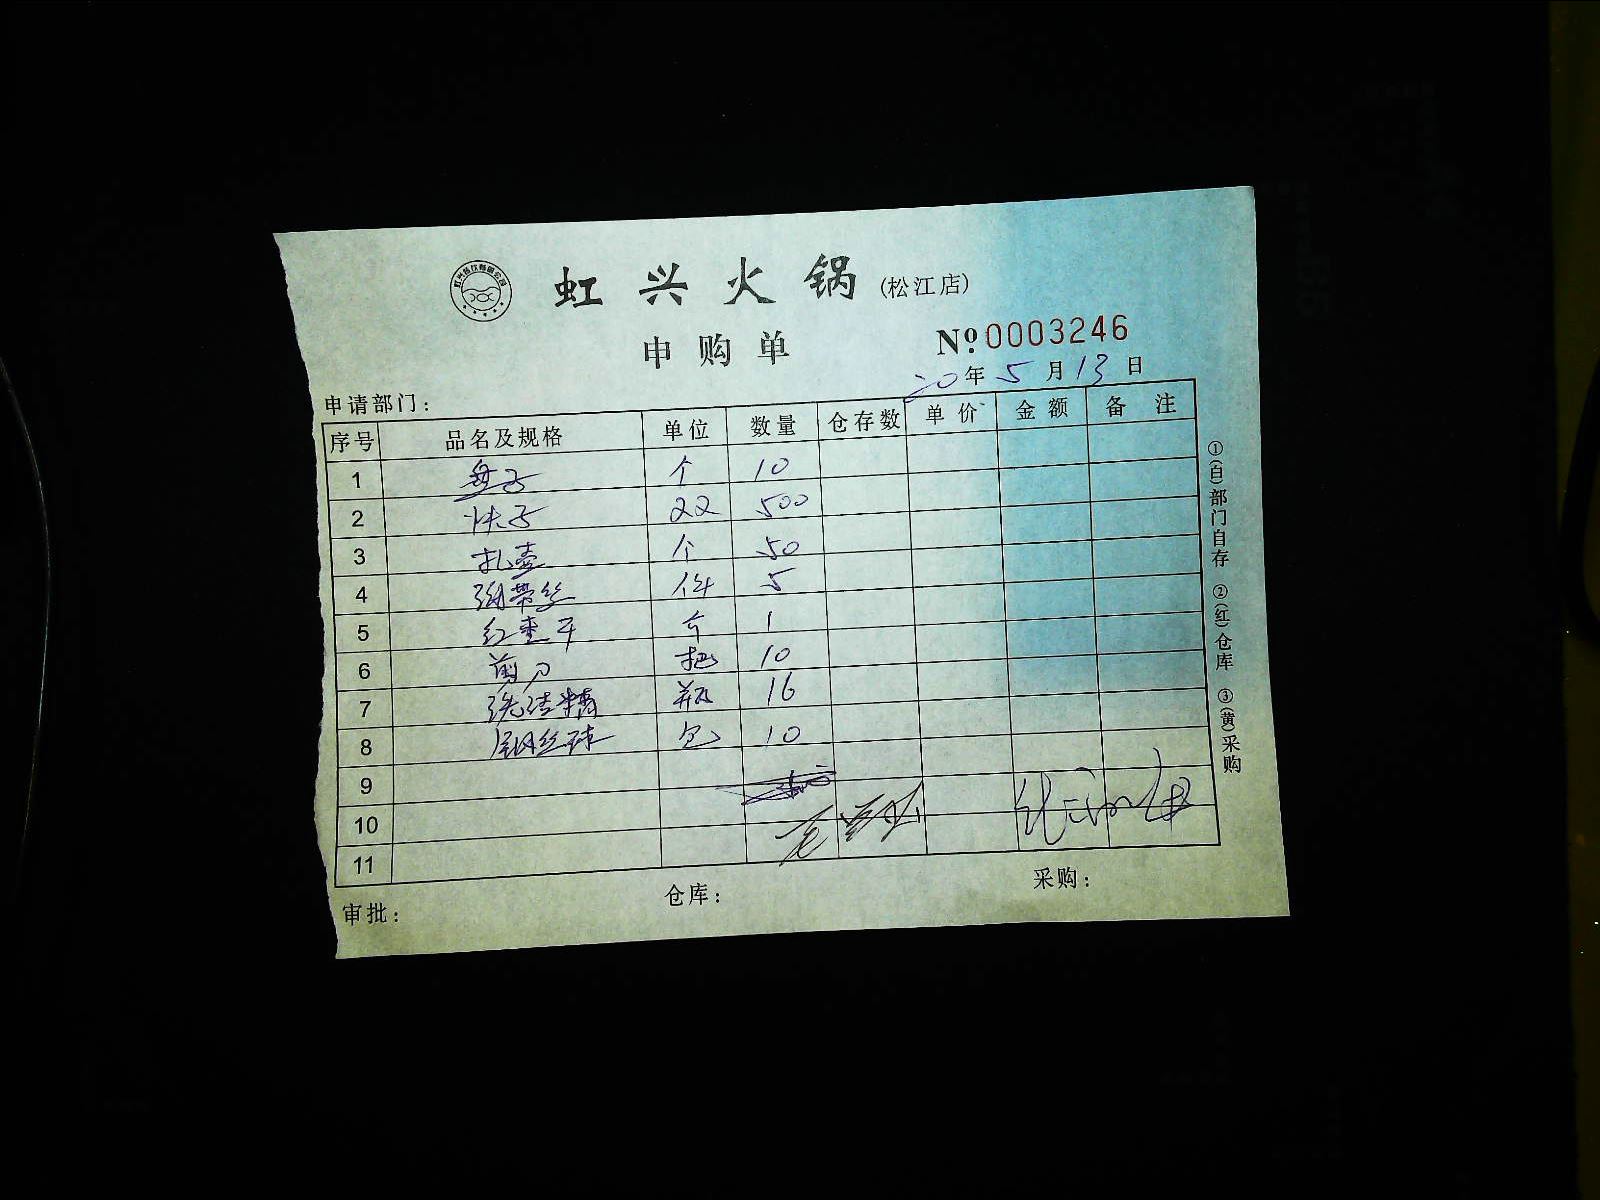 虹兴火锅(松江店)
申购单
No 0003246
20年5月13日
申请部门:
序号 品名及规格 单位 数量 仓存数 单价 金额 备注
1 盘子 个 10
2 快子 22 500
3 扎壶 个 50
4 5
5 个 1
6 剪刀 把 10
7 洗洁精 瓶 16
8 钢丝球 包 10
9
10
11
审批: 仓库: 采购:
①(白)部门自存 ②(红)仓库 ③(黄)采购